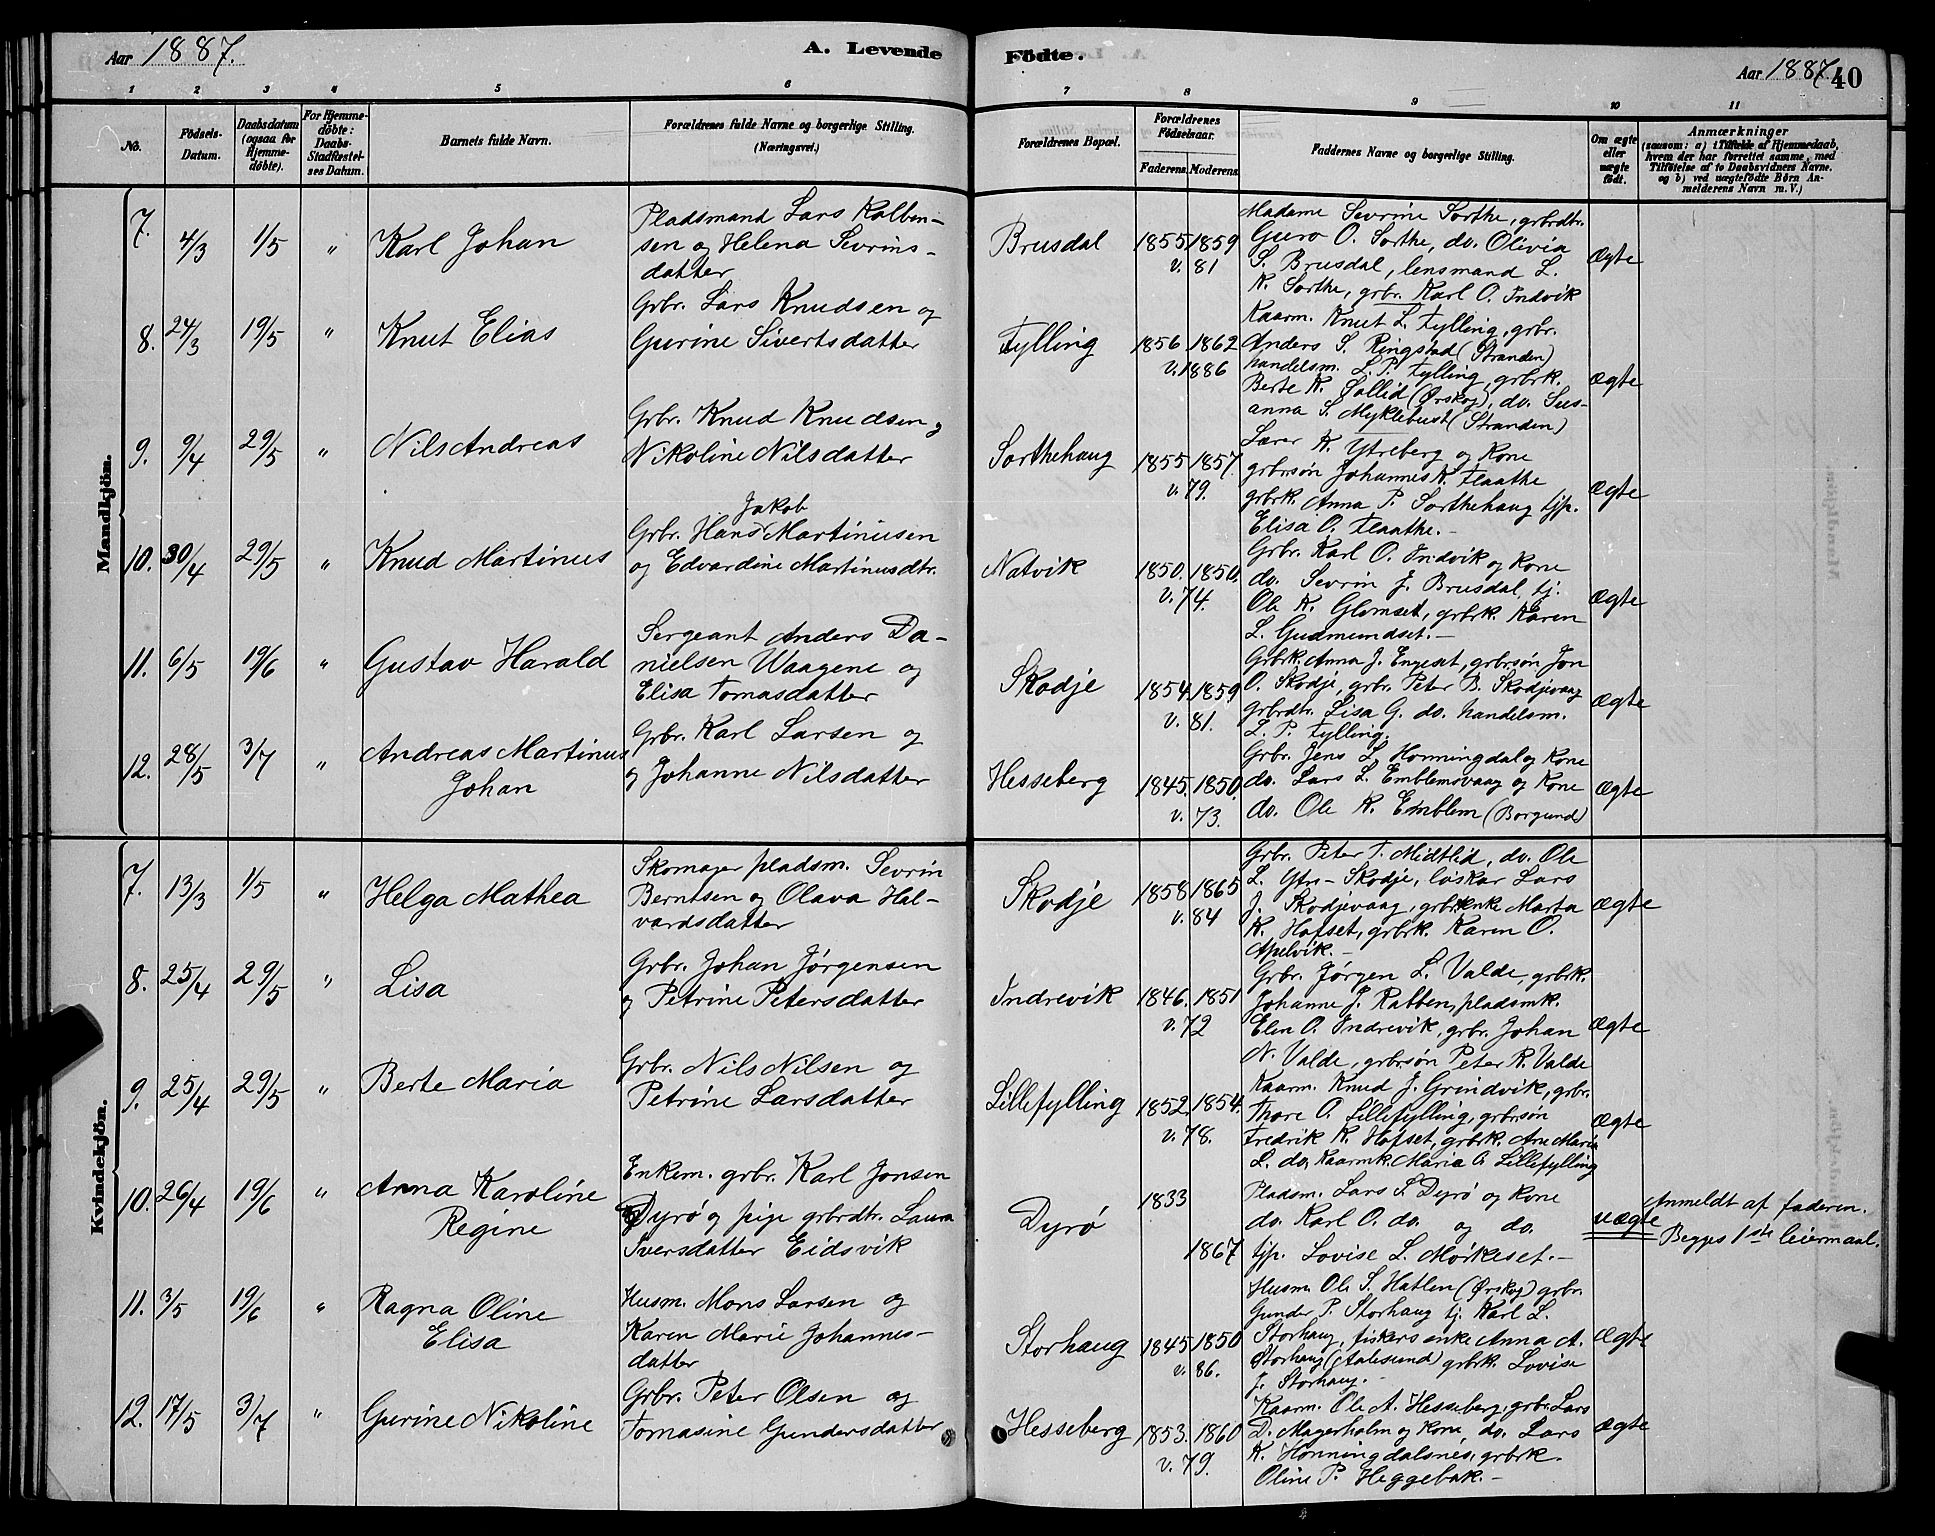 Aar 1887.
A. Levende
Födte.
Aar 1887.
40
1 2 3 4 5 6 7 8 9 10 11
No.
Födsels-Datum.
Daabsdatum (ogsaa for Hjemme-döbte).
For Hjemme-döbte: Daabs-Stadfæstel-ses Datum.
Barnets fulde Navn.
Forældrenes fulde Navne og borgerlige Stilling.
(Næringsvei.)
Forældrenes Bopæl.
Forældrenes Födselsaar.
Faderens. Moderens.
Faddernes Navne og borgerlige Stilling.
Om ægte eller uægte födt.
Anmærkninger
(saasom: a) i Tilfælde af Hjemmedaab,
hvem der har forrettet samme, med
Tilföielse af to Daabsvidners Navne.
og b) ved uægtefödte Börn An-
melderens Navn m. V.)
Mandkjön.
7. 4/3 1/5 " Karl Johan
Pladsmand Lars Kolben-
sen og Helena Sevrins-
datter
Brusdal 1855 1859
v. 81
Madame Sevrine Sorthe, grbrdtr.
Guro O. Sorthe, do. Olivia
S. Brusdal, lensmand L.
K. Sorthe, grbr. Karl O. Indvik
Ægte
8. 24/3 19/5 " Knut Elias
Grbr. Lars Knudsen og
Gurine Sivertsdatter
Fylling 1856 1862
v. 1886
Kaarm. Knut L. Fylling, grbr.
Anders S. Ringstad (Stranden)
handelsm. L. P. Fylling, grbrk.
Berte K. Sollid (Ørskog), do. Sus-
anna S. Myklebust (Stranden)
Ægte
9. 9/4 29/5 " Nils Andreas
Grbr. Knud Knudsen og
Nikoline Nilsdatter
Sorthehaug 1855 1857.
v. 79.
Lærer K. Ytreberg og Kone
grbrsøn Johannes K. Flaathe
grbrk. Anna P. Sorthehaug tjp.
Elisa O. Flaathe.-
Ægte
10. 30/4 29/5 " Knud Martinus
Jakob
Grbr. Hans Martinusen
og Edvardine Martinusdtr.
Natvik 1850. 1850.
v. 74.
Grbr. Karl O. Indvik og Kone
do. Sevrin J. Brusdal, tj.
Ole K. Glomset, grbrk. Karen
L. Gudmundset.-
Ægte
11. 6/5 19/6 " Gustav Harald
Sergeant Anders Da-
nielsen Waagene og
Elisa Tomasdatter
Skodje 1854 1859
v. 81.
Grbrk. Anna J. Engeset, grbrsøn Jon
O. Skodje, grbr. Peter B. Skodjevaag
grbrdtr. Lisa G. do. handelsm.
L. P. Fylling.
Ægte
12. 28/5 3/7 " Andreas Martinus
Johan
Grbr. Karl Larsen og
og Johanne Nilsdatter
Hesseberg 1845. 1850.
v. 73.
Grbr. Jens L. Honningdal og Kone
do. Lars L. Emblemsvaag og Kone
do. Ole K. Emblem (Borgund)
Ægte
Kvindekjön.
7. 13/3 1/5 " Helga Mathea
Skomager pladsm. Sevrin
Berntsen og Olava Hal-
vardsdatter
Skodje 1858 1865
v. 84
Grbr. Peter T. Midtlid, do. Ole
L. Ytre-Skodje, løskar Lars
J. Skodjevaag, grbrenke Marta
K. Hofset, grbrk. Karen O.
Apelvik.-
Ægte
8. 25/4 29/5 " Lisa
Grbr. Johan Jørgensen
og Petrine Petersdatter
Indrevik 1846. 1851
v. 72
Grbr. Jørgen L. Valde, grbrk.
Johanne J. Rabben, pladsmk.
Elen O. Indrevik, grbr. Johan
N. Valde, grbrsøn Peter R. Valde
Ægte
9. 25/4 29/5 " Berte Maria
Grbr. Nils Nilsen og
Petrine Larsdatter
Lillefylling 1852 1854.
v. 78.
Kaarm. Knud J. Grindvik, grbr.
Thore O. Lillefylling, grbrsøn
Fredrik K. Hofset, grbrk. Ane Maria
L. do, Kaarmk. Maria O. Lillefylling
Ægte
10. 26/4 19/6 " Anna Karoline
Regine
Enkem. grbr. Karl Jonsen
Dyrø og pige grbrdtr. Laura
Iversdatter Eidsvik
Dyrø 1833
1867
Pladsm. Lars L. Dyrø og Kone
do. Karl O. do. og do.
tjp. Lovise L. Mørkeset.-
uægte
Anmeldt af faderen.
Begges 1ste leiermaal.
11. 3/5 19/6 " Ragna Oline
Elisa
Husm. Mons Larsen og
Karen Marie Johannes-
datter
Storhaug 1845 1850
v. 86.
Husm. Ole S. Hatlen (Ørskog) grbr.
Gunder P. Storhaug tj. Karl L.
Storhaug, fiskers enke Anna A.
Storhaug (Aalesund) grbrk. Lovise
J. Storhaug.-
Ægte
12. 17/5 3/7 " Gurine Nikoline
Grbr. Peter Olsen og
Tomasine Gundersdatter
Hesseberg 1853. 1860
v. 79.
Kaarm. Ole A. Hesseberg, grbr. Lars
D. Magerholm og Kone, do. Lars
K. Honningdalsnes, grbrk.
Oline P. Heggebak.-
Ægte